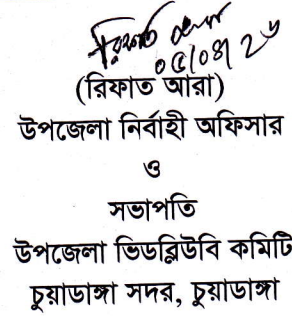 রিফাত আরা
০৫/০৪/২৬
(রিফাত আরা)
উপজেলা নির্বাহী অফিসার
ও
সভাপতি
উপজেলা ভিডব্লিউবি কমিটি
চুয়াডাঙ্গা সদর, চুয়াডাঙ্গা